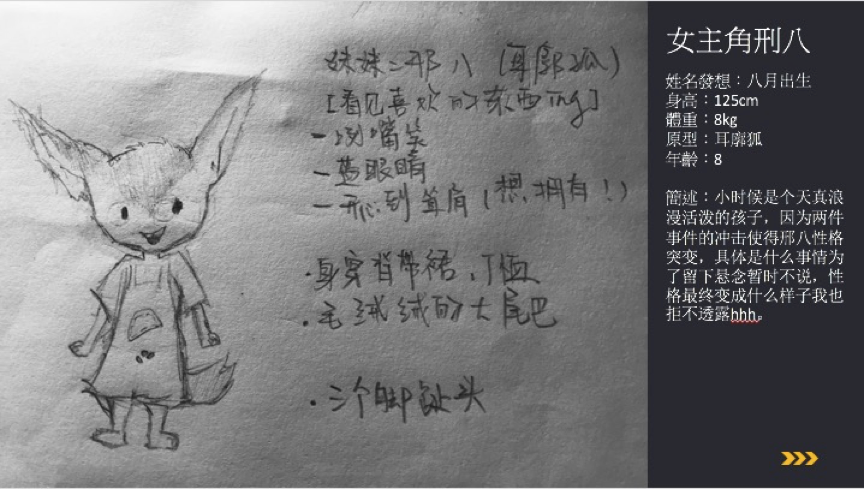 妹妹：邢八（耳廓狐）
[看见喜欢的东西ing]
－咧嘴笑
－蓝眼睛
－开心到耸肩（想拥有！）
·身穿背带裙、T恤
·毛绒绒的大尾巴
·三个脚趾头
女主角刑八
姓名發想：八月出生
身高：125cm
體重：8kg
原型：耳廓狐
年齡：8
簡述：小时候是个天真浪
漫活泼的孩子，因为两件
事件的冲击使得邢八性格
突变，具体是什么事情为
了留下悬念暂时不说，性
格最终变成什么样子我也
拒不透露hhh。